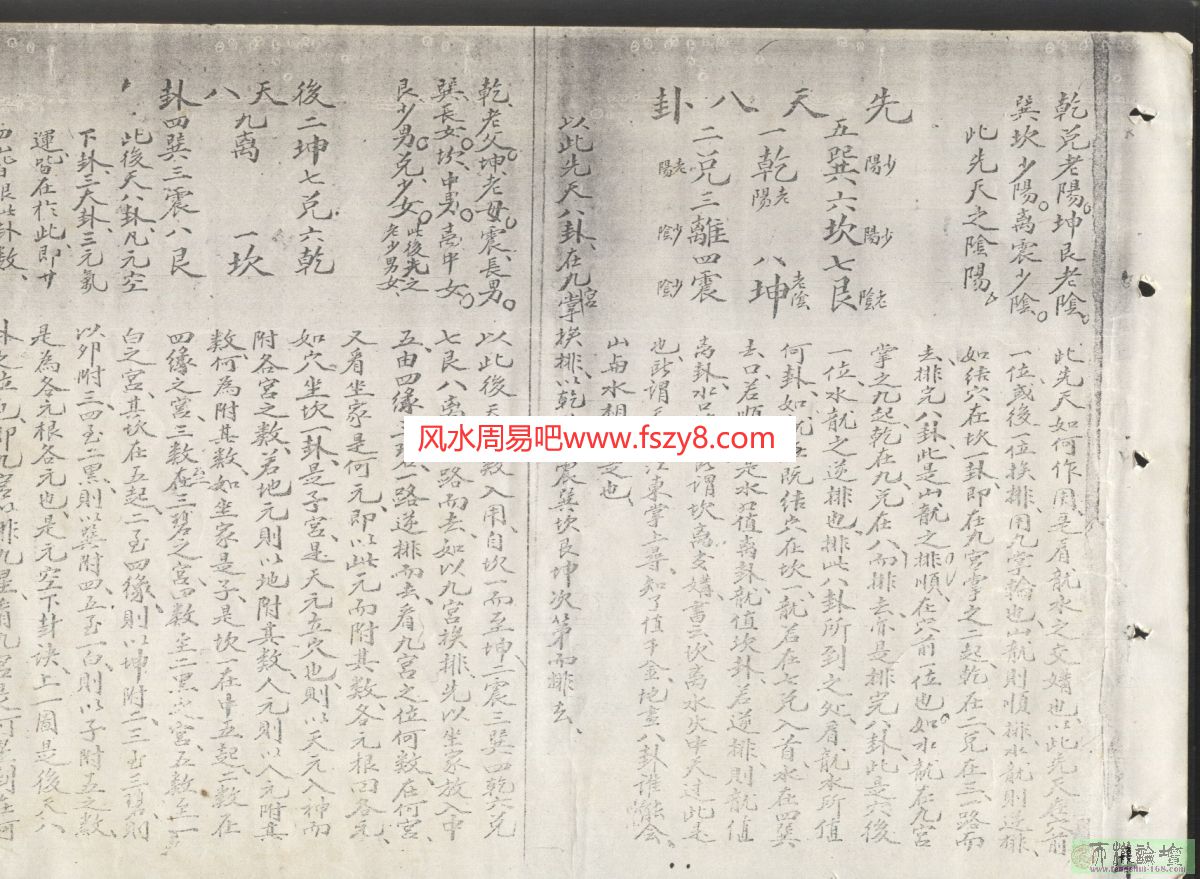 乾兌老陽。坤艮老陰。
巽坎少陽。离震少陰。
此先天之陰陽。
先天八卦
少陽 少陽 老陰
五巽六坎七艮
一乾老陽 八坤老陰
二兌三離四震
老陽 少陰 少陰
此先天如何作用是看龍水之交媾也以此先天處穴前
一位或後一位挨排用九掌輪也山龍則順排水龍則逆排
如结穴在坎一卦即在九宮掌之二起乾在二兌在三一路而
去排完八卦此是山龍之排順在穴前一位也如水龍在九宮
掌之九起乾在九兌在八而排去亦是排完八卦此是穴後
一位水龍之逆排也排此八卦所到之处看龍水所值
何卦如 既结穴在坎 龍若在七兌入首水在四巽
去口若順 是水值离卦龍值坎卦若逆排則龍值
离卦水口 謂坎离交媾書云坎离水火中天过此是
也所謂 江東掌上尋知了值千金地畫八卦誰能会
山與水相 是也
以此先天八卦在九宮掌挨排以乾 震巽坎艮坤次第而排去
乾老父坤老母震長男。
巽長女坎中男。离中女。
艮少男兌少女。此後先之老少男女
後天八卦
二坤七兌六乾
九离 一坎
四巽三震八艮
此後天八卦凡元空
下卦三大卦三元氣
運皆在於此即廿
四山皆根此卦数
以此後天 数入用自坎一而至坤二震三巽四乾六兌
七艮八离 路而去如以九宮挨排先以坐家放入中
五由四緣三碧一路逐排而去看九宮之位何数在何宮
又看坐家是何元即以此元而附其数各元根囬各元
如穴坐坎一卦是子宮是天元立穴也則以天元入神而
附各宮之数若地元則以地附其数人元則以人元附其
数何為附其数如坐家是子是坎一在中五起二数在
四緣之宮三数在三碧之宮四数至二黑之宮五数至一
白之宮其坎在五起二至四緣則以坤附二三至三碧則
以卯附三四至二黑則以巽附四五至一白則以子附五之数
是為各元根各元也是元空下卦訣上一圖是後天八
风水周易吧www.fszy8.com
www.fengshui-168.com